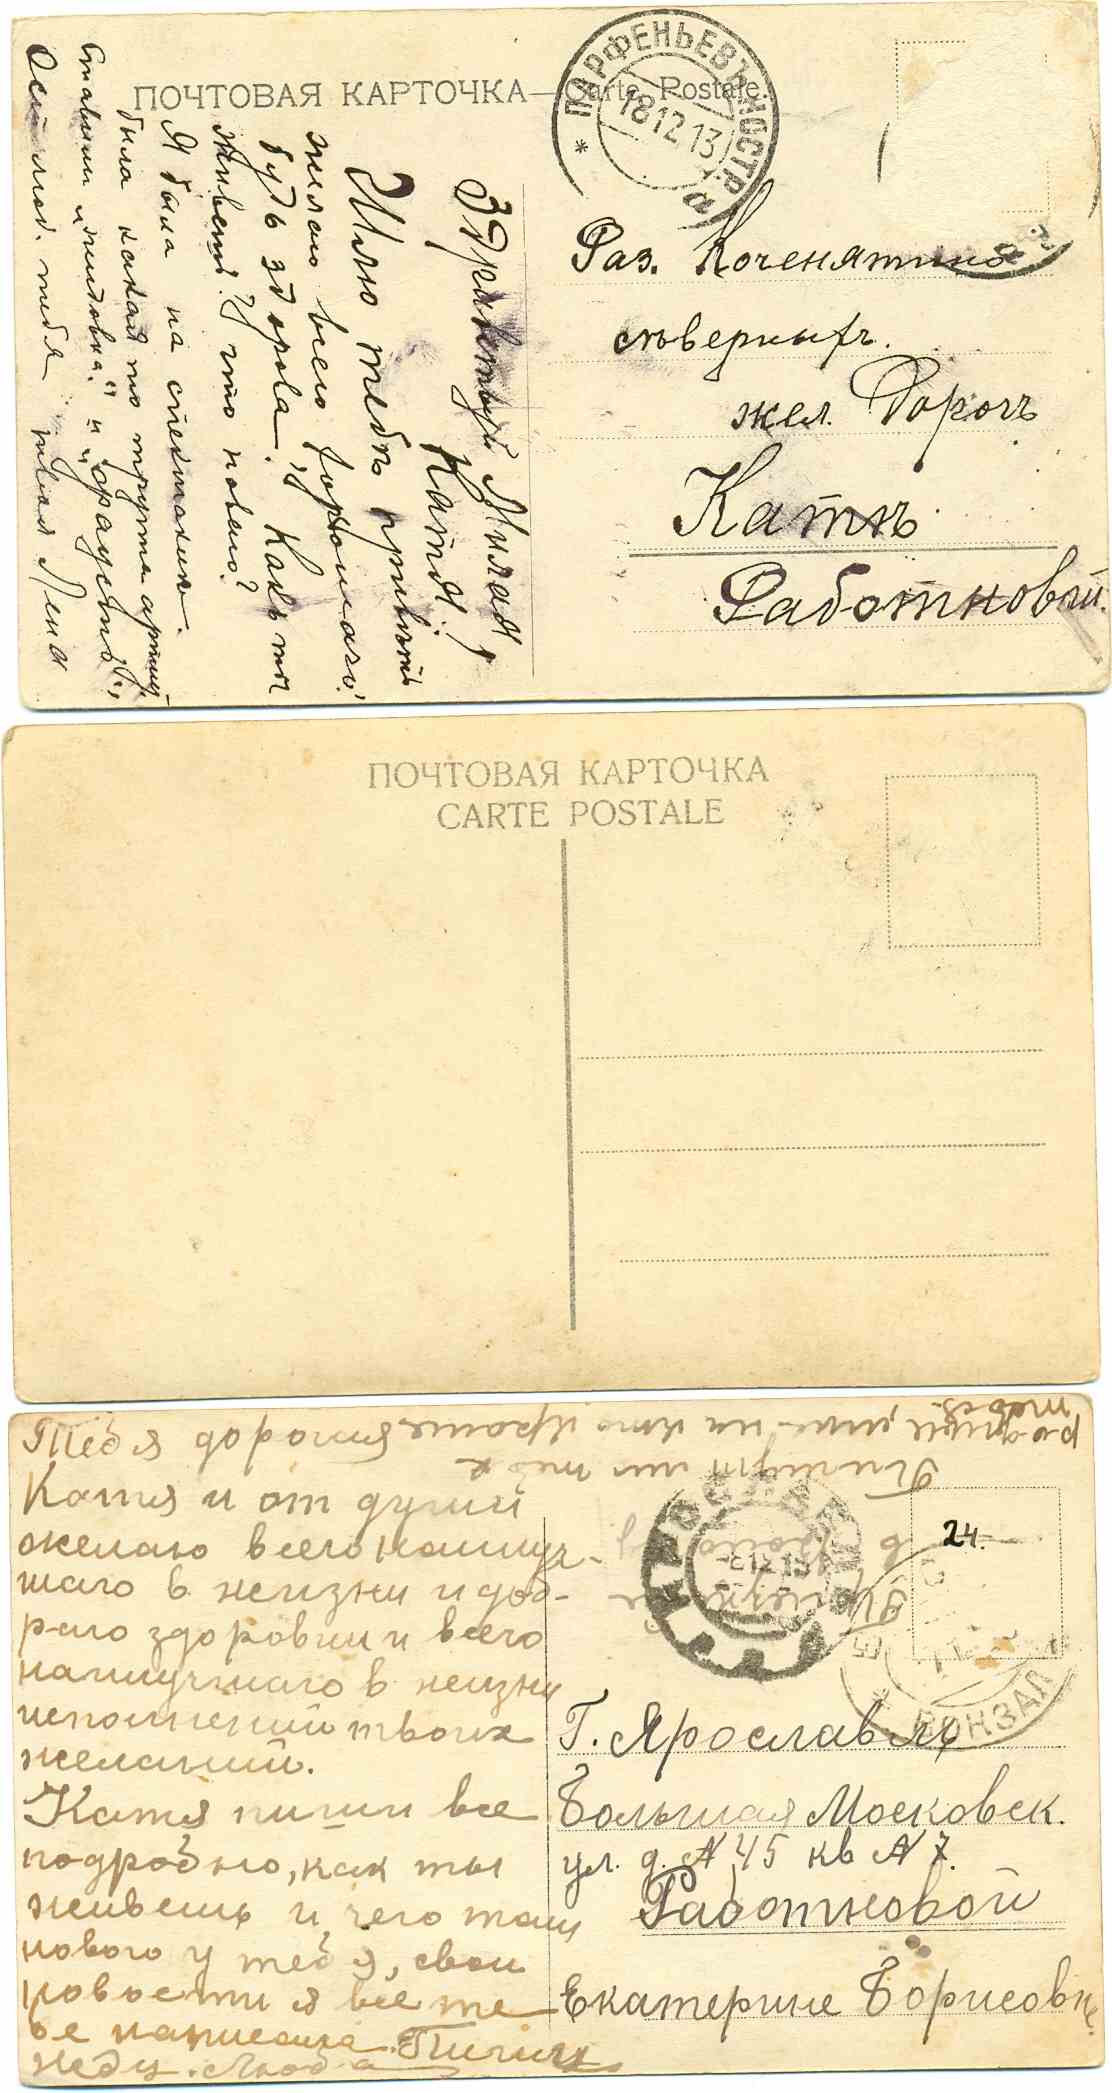 ПОЧТОВАЯ КАРТОЧКА — Carte Postale.
ПАРФЕНЬЕВЪ КОСТР.
18 12 13
Здравствуй Милая
Катя!
Шлю тебѣ привѣтъ
желаю всего хорошаго.
будь здорова. Какъ ты
живешь? И что новаго?
Я была на спектакле.
была какая то труппа артис.
ставили
тебя твоя Лиза
Раз. Коченятино
сѣверныхъ.
жел. Дорогъ
Катѣ
Работновой.
ПОЧТОВАЯ КАРТОЧКА
CARTE POSTALE
Тебя дорогая
Катя и от души
желаю всего наилуч-
шаго в жизни и доб-
раго здоровия и всего
наилучшаго в жизни
исполнений твоих
желаний.
Катя пиши все
подробно, как ты
живешь и чего там
нового у тебя, свои
новости я все те
бе написала. Пиши
жду. Люба
24.
ВОКЗАЛ
Г. Ярославль
Большая Московск.
ул. д. № 45 кв № 7.
Работновой
Екатерине Борисовне.